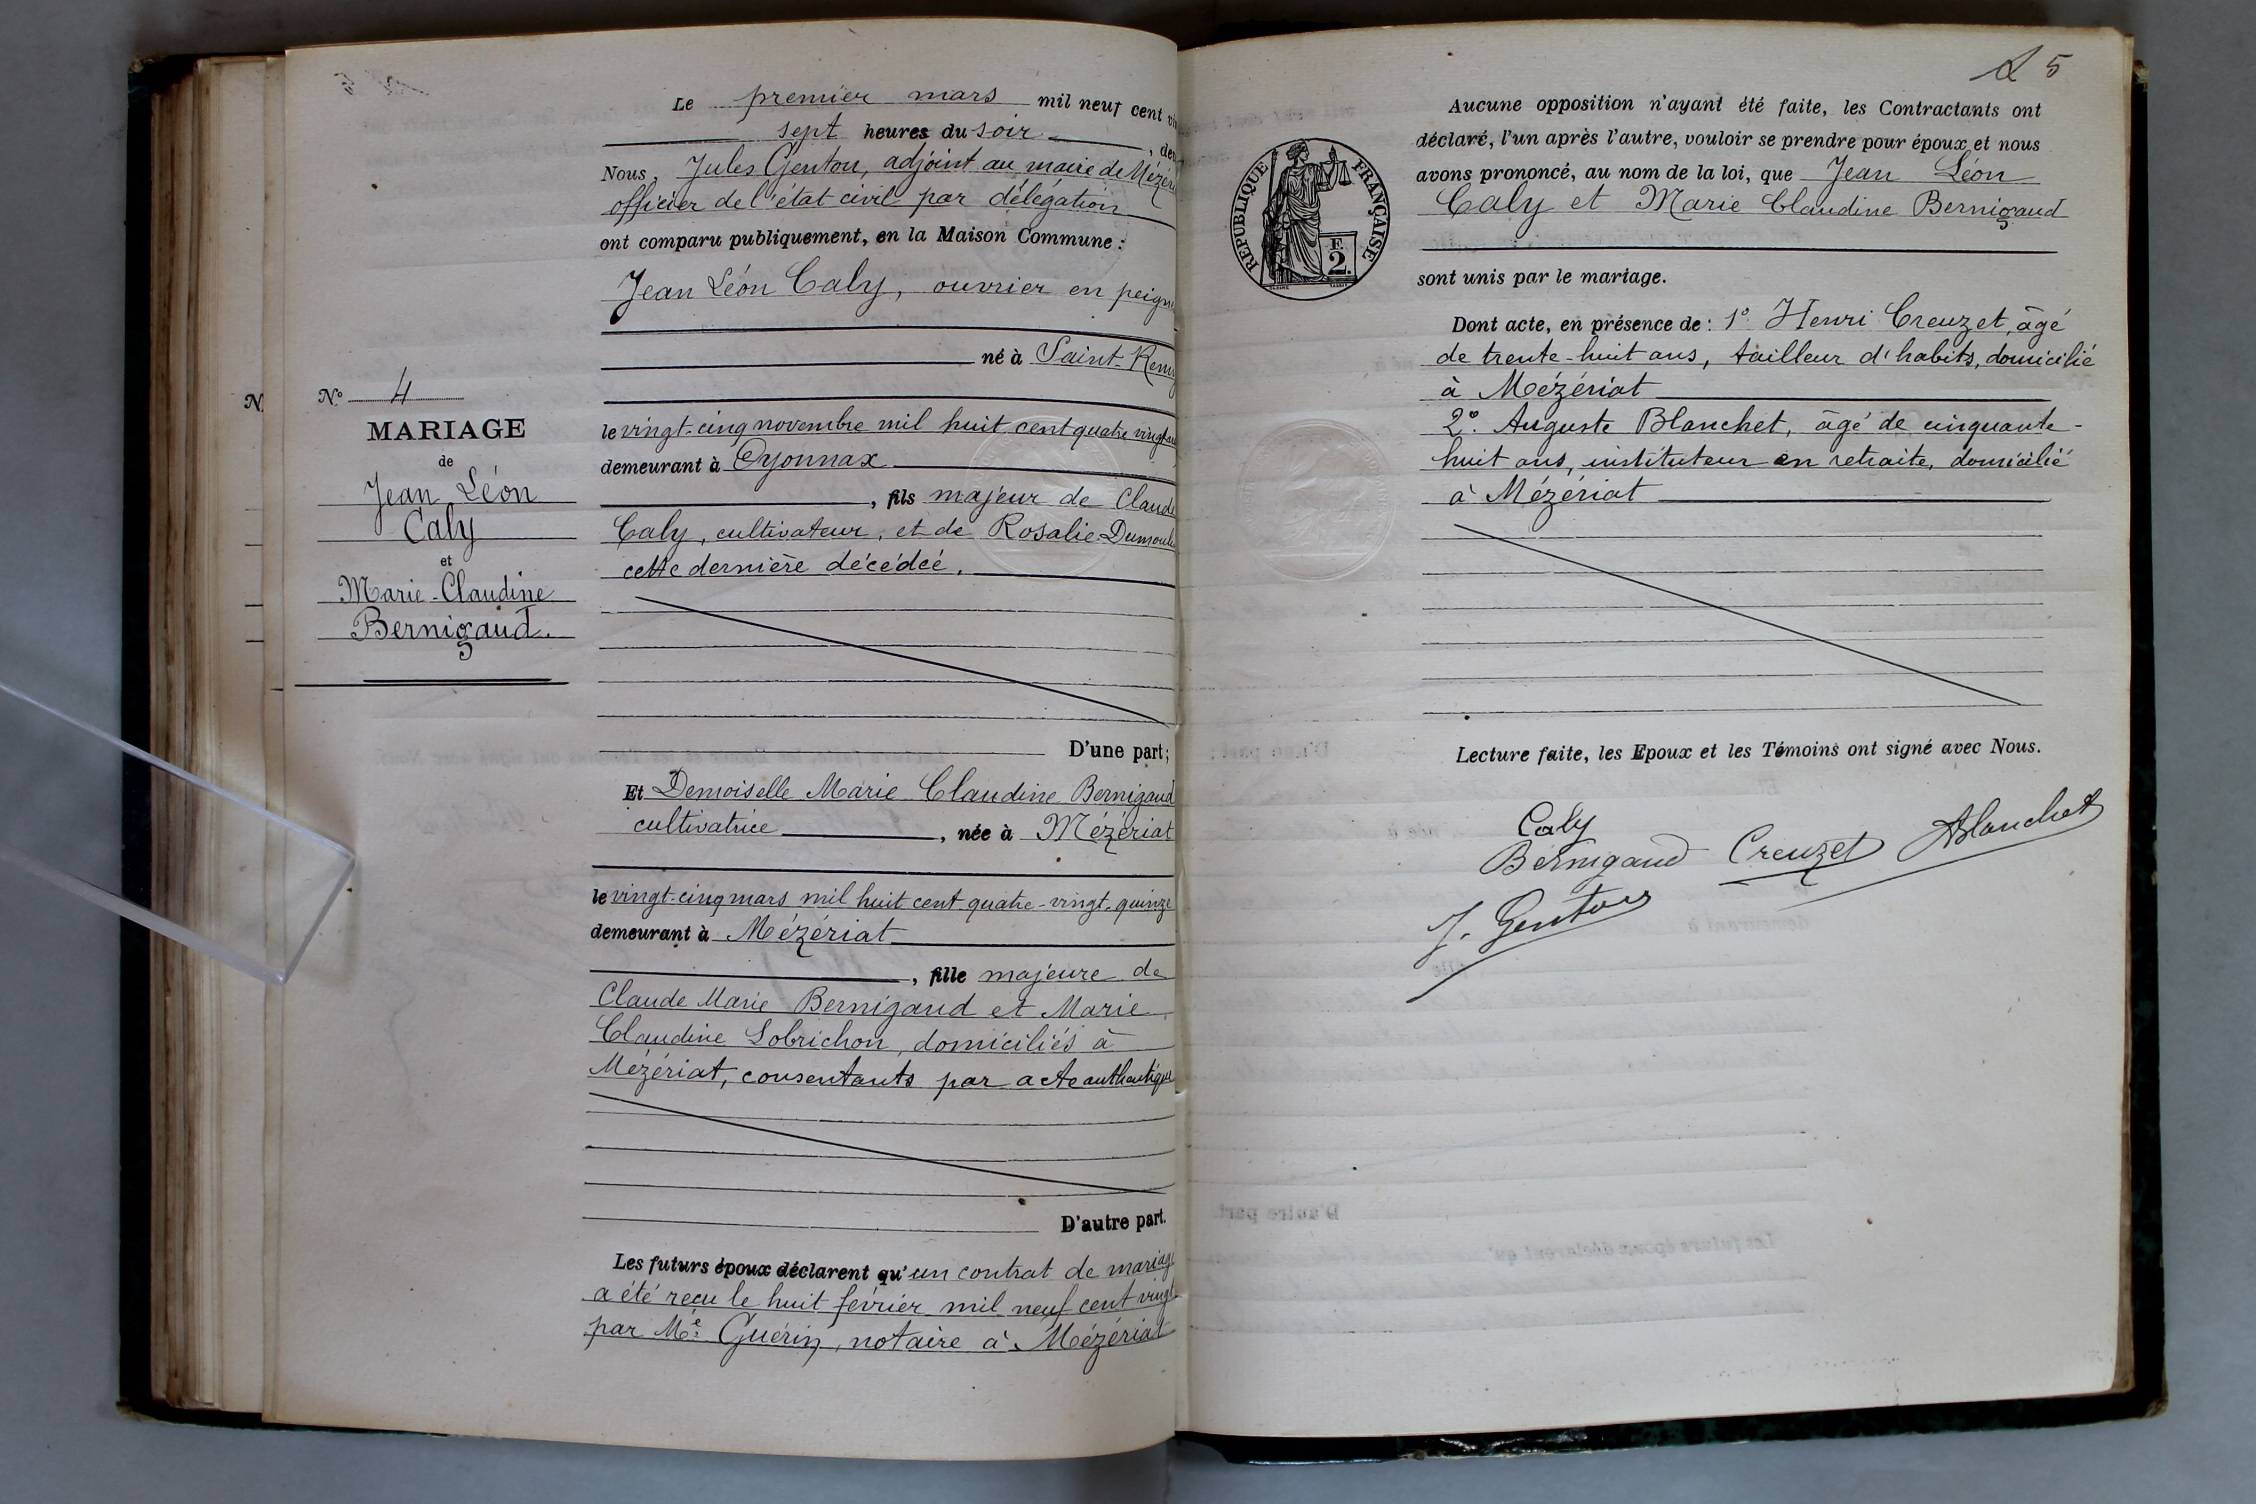 Le premier mars mil neuf cent
sept heures du soir
Nous, Jules Genton, adjoint au maire de
officier de l'état civil par délégation
ont comparu publiquement, en la Maison Commune :
Jean Léon Caly, ouvrier en
né à Saint-
N° 4
MARIAGE
de
Jean Léon
Caly
et
Marie-Claudine
Bernigaud.
le vingt-cinq novembre mil huit cent quatre
demeurant à Oyonnax
, fils majeur de Claude
Caly, cultivateur, et de Rosalie
cette dernière décédée.
D'une part;
Et Demoiselle Marie Claudine Bernigaud
cultivatrice , née à Mézériat
le vingt-cinq mars mil huit cent quatre-vingt-quinze
demeurant à Mézériat
, fille majeure de
Claude Marie Bernigaud et Marie
Claudine Lobrichon, domiciliés à
Mézériat, consentants par acte authentique
D'autre part.
Les futurs époux déclarent qu'un contrat de mariage
a été reçu le huit février mil neuf cent vingt
par Me Guérin, notaire à Mézériat
5
RÉPUBLIQUE FRANÇAISE
F.
2.
Aucune opposition n'ayant été faite, les Contractants ont
déclaré, l'un après l'autre, vouloir se prendre pour époux et nous
avons prononcé, au nom de la loi, que Jean Léon
Caly et Marie Claudine Bernigaud
sont unis par le mariage.
Dont acte, en présence de : 1° Henri Creuzet, âgé
de trente-huit ans, tailleur d'habits, domicilié
à Mézériat
2°. Auguste Blanchet, âgé de cinquante-
huit ans, instituteur en retraite, domicilié
à Mézériat
Lecture faite, les Epoux et les Témoins ont signé avec Nous.
Caly
Bernigaud Creuzet ABlanchet
J. Genton